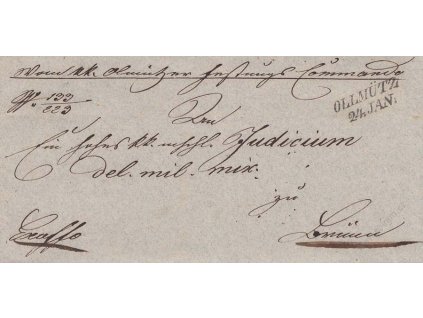 Vom kk. Olmützer Festungs Commando
No 133/223
OLLMÜTZ
24. JAN.
An
Ein hohes kk. mschl. Judicium
del. mil. mix.
zu
Ex offo
Brünn